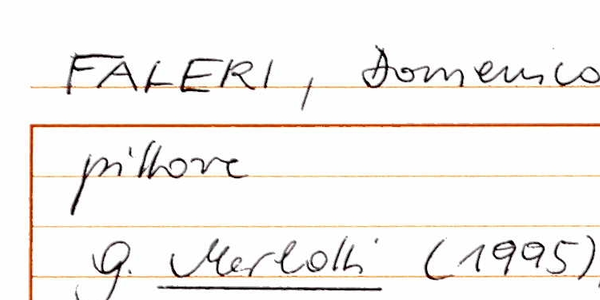 FALERI, Domenico
pittore
G. Merlotti (1995),